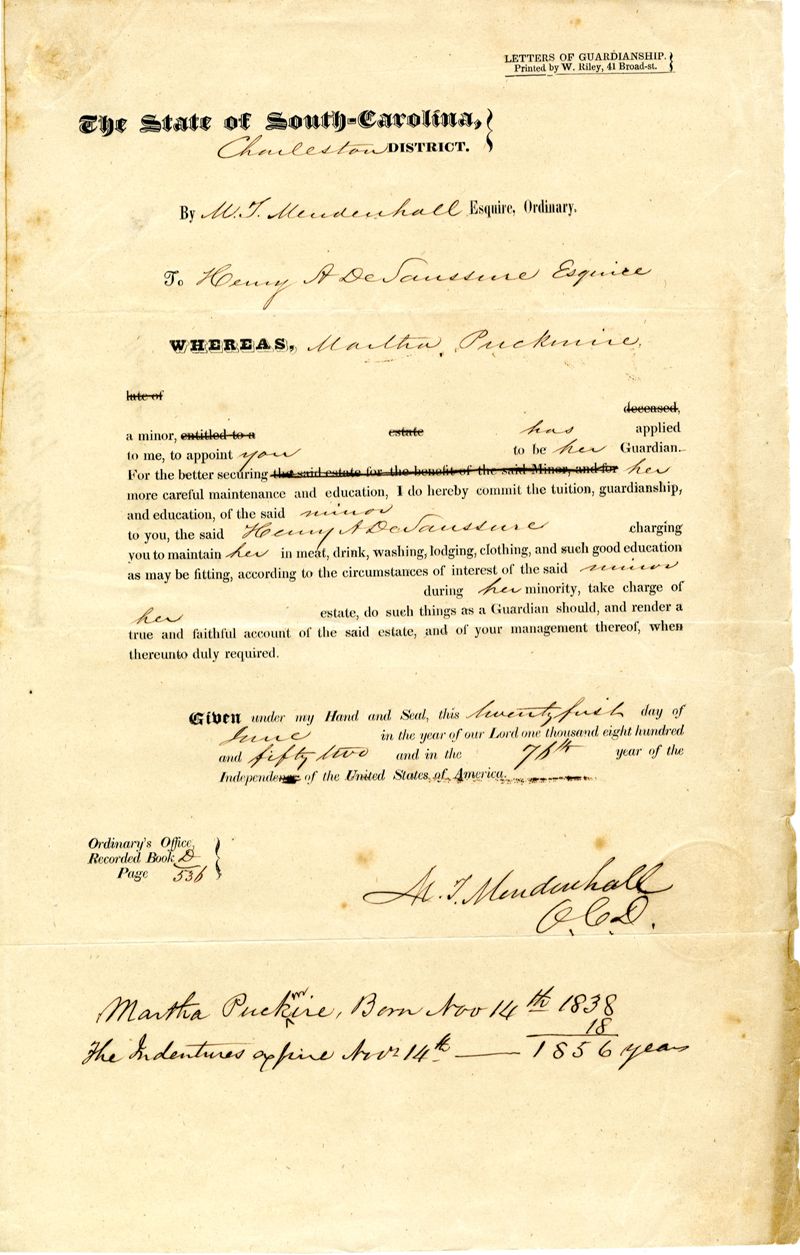 LETTERS OF GUARDIANSHIP.
Printed by W. Riley, 41 Broad-st.
The State of South-Carolina,
Charleston DISTRICT.
By M. T. Mendenhall Esquire, Ordinary.
To Henry A DeSaussure Esquire
WHEREAS, Martha Puckmire,
late of
deceased,
a minor, entitled to a estate has applied
to me, to appoint you to be her Guardian.
For the better securing the said estate for the benefit of the said Minor, and for her
more careful maintenance and education, I do hereby commit the tuition, guardianship,
and education, of the said minor
to you, the said Henry A DeSaussure charging
you to maintain her in meat, drink, washing, lodging, clothing, and such good education
as may be fitting, according to the circumstances of interest of the said minor
during her minority, take charge of
her estate, do such things as a Guardian should, and render a
true and faithful account of the said estate, and of your management thereof, when
thereunto duly required.
Given under my Hand and Seal, this twenty first day of
June in the year of our Lord one thousand eight hundred
and fifty two and in the 76th year of the
Independence of the United States of America.
Ordinary's Office,
Recorded Book D
Page 536
M. T. Mendenhall
O. C. D.
Martha Puckmire, Born Nov 14th 1838
18
The Indentures expire Novr 14th — 1856 years